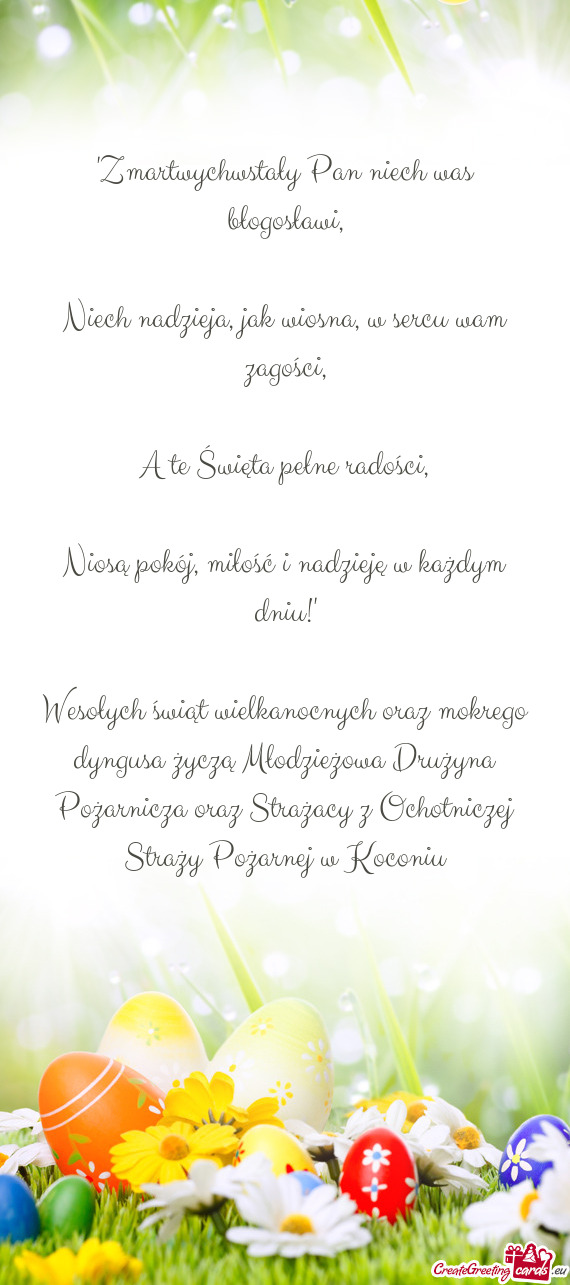 "Zmartwychwstały Pan niech was
błogosławi,
Niech nadzieja, jak wiosna, w sercu wam
zagości,
A te Święta pełne radości,
Niosą pokój, miłość i nadzieję w każdym
dniu!"
Wesołych świąt wielkanocnych oraz mokrego
dyngusa życzą Młodzieżowa Drużyna
Pożarnicza oraz Strażacy z Ochotniczej
Straży Pożarnej w Koconiu
CreateGreeting cards .eu